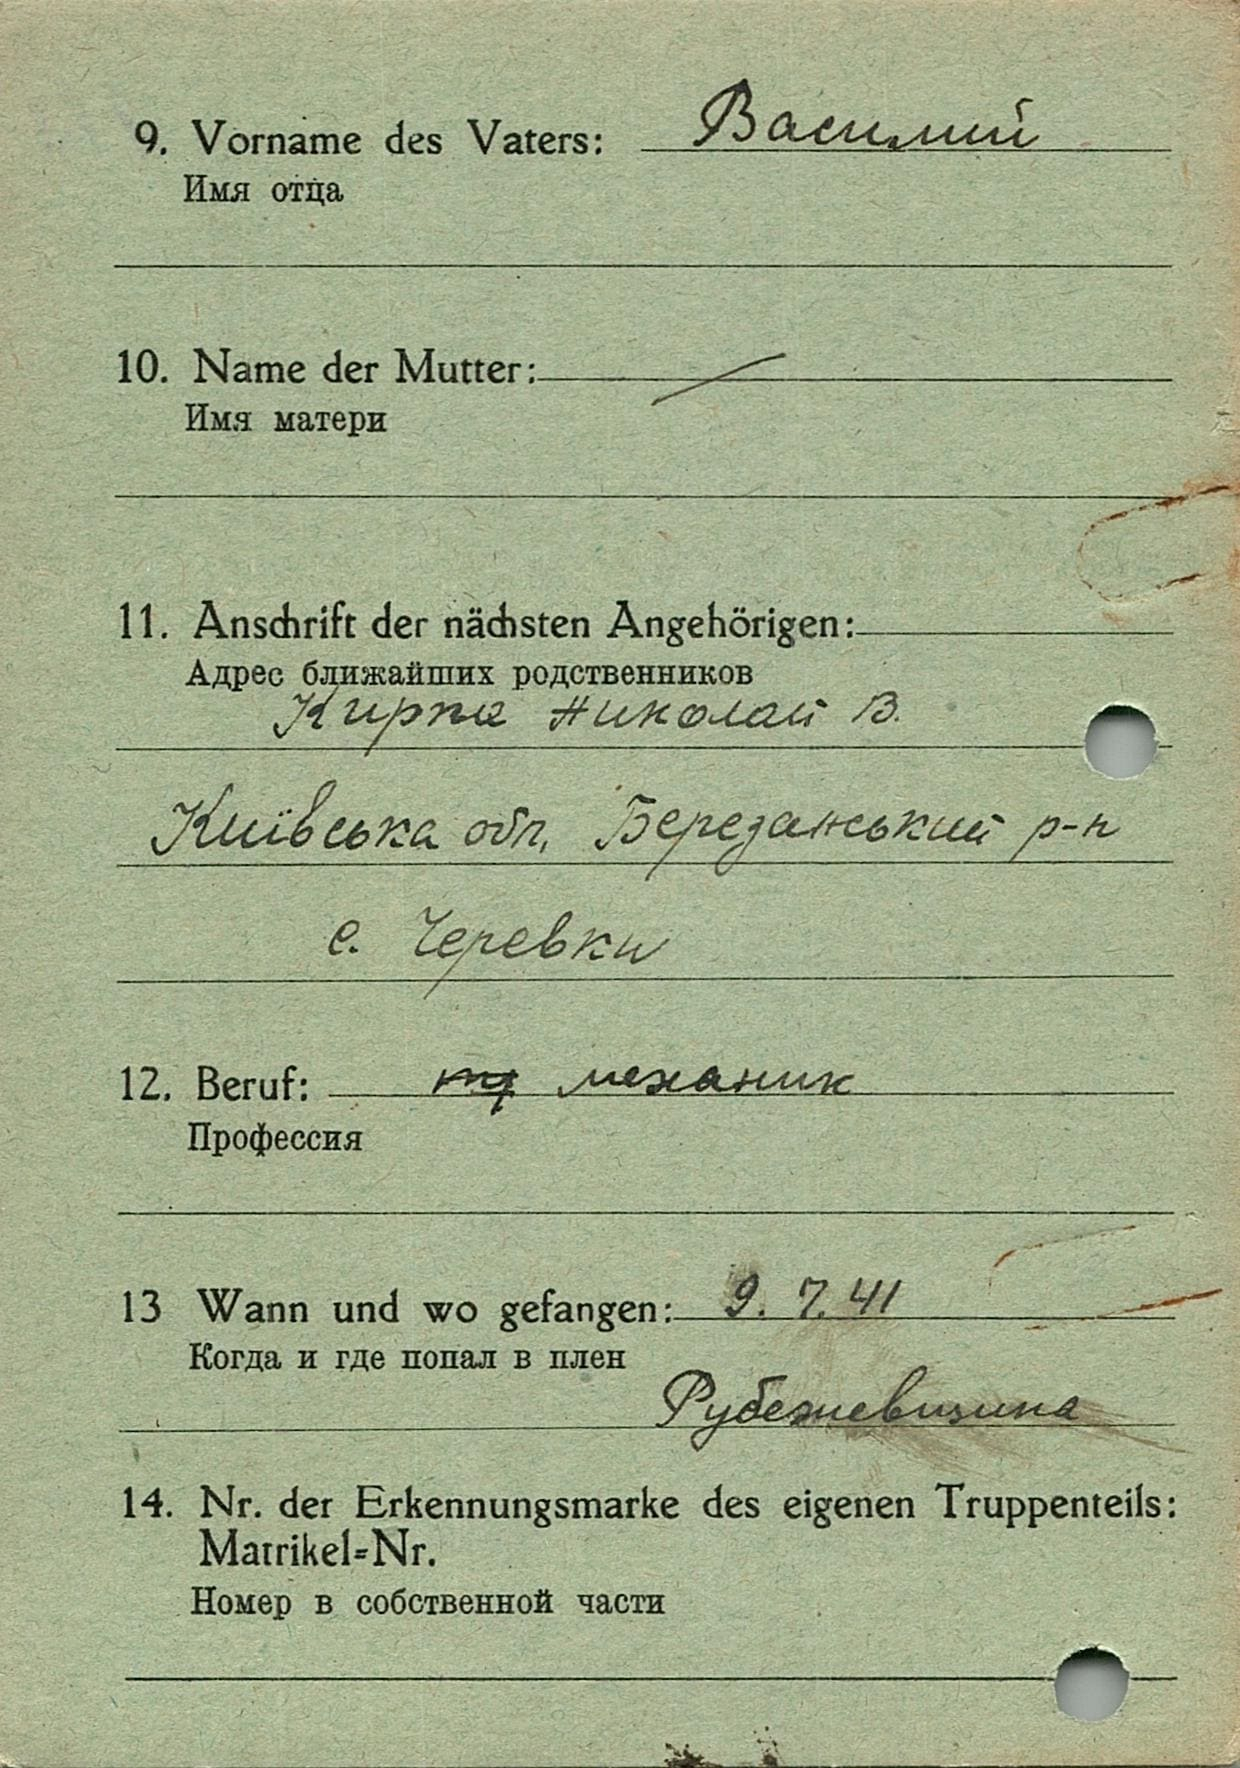 9. Vorname des Vaters: Василий
Имя отца
10. Name der Mutter:
Имя матери
11. Anschrift der nächsten Angehörigen:
Адрес ближайших родственников
Кирпа Николай В.
Київська обл, Березанський р-н
с. Черевки
12. Beruf: механик
Профессия
13 Wann und wo gefangen: 9. 7. 41
Когда и где попал в плен
Рубежевщина
14. Nr. der Erkennungsmarke des eigenen Truppenteils:
Matrikel=Nr.
Номер в собственной части